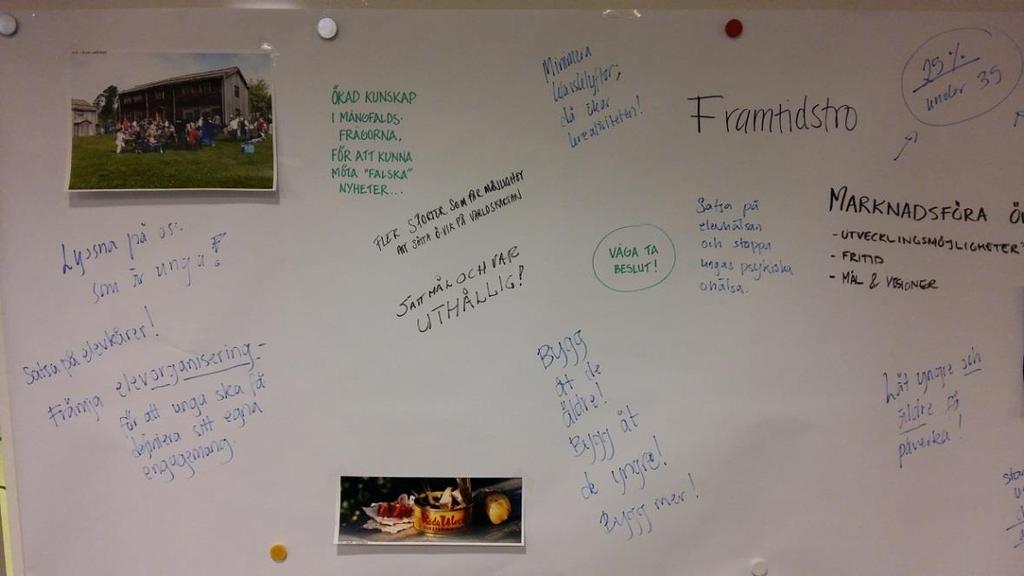 ÖKAD KUNSKAP
I MÅNGFALDS-
FRÅGORNA,
FÖR ATT KUNNA
MÖTA "FALSKA"
NYHETER...
Lyssna på oss
som är unga!
Satsa på elevkårer!
Främja elevorganisering -
för att unga ska få
definiera sitt egna
engagemang.
FLER SPORTER SOM FÅR MÖJLIGHET
ATT SÄTTA ÖVIK PÅ VÄRLDSKARTAN
SÄTT MÅL OCH VAR
UTHÅLLIG!
Minimera
då ökar
kreativiteten!
VÅGA TA
BESLUT!
Bygg
åt de
äldre!
Bygg åt
de yngre!
Bygg mer!
Framtidstro
Satsa på
elevhälsan
och stoppa
ungas psykiska
ohälsa.
25%
under 35
MARKNADSFÖRA
- UTVECKLINGSMÖJLIGHETER
- FRITID
- MÅL & VISIONER
Låt yngre och
äldre få
påverka!
Röda Ulven